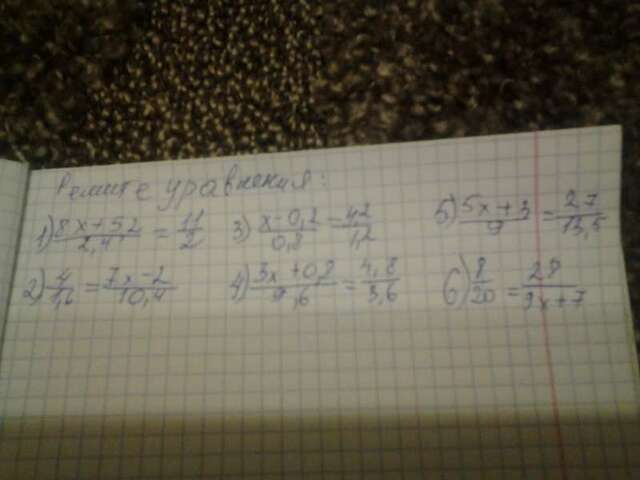 Решите уравнения:
1) (8x+5,2)/2,4 = 11/2 3) (x-0,2)/0,8 = 42/1,2 5) (5x+3)/9 = 27/13,5
2) 4/1,6 = (7x-2)/10,4 4) (3x+0,8)/9,6 = 4,8/3,6 6) 8/20 = 28/(9x+7)